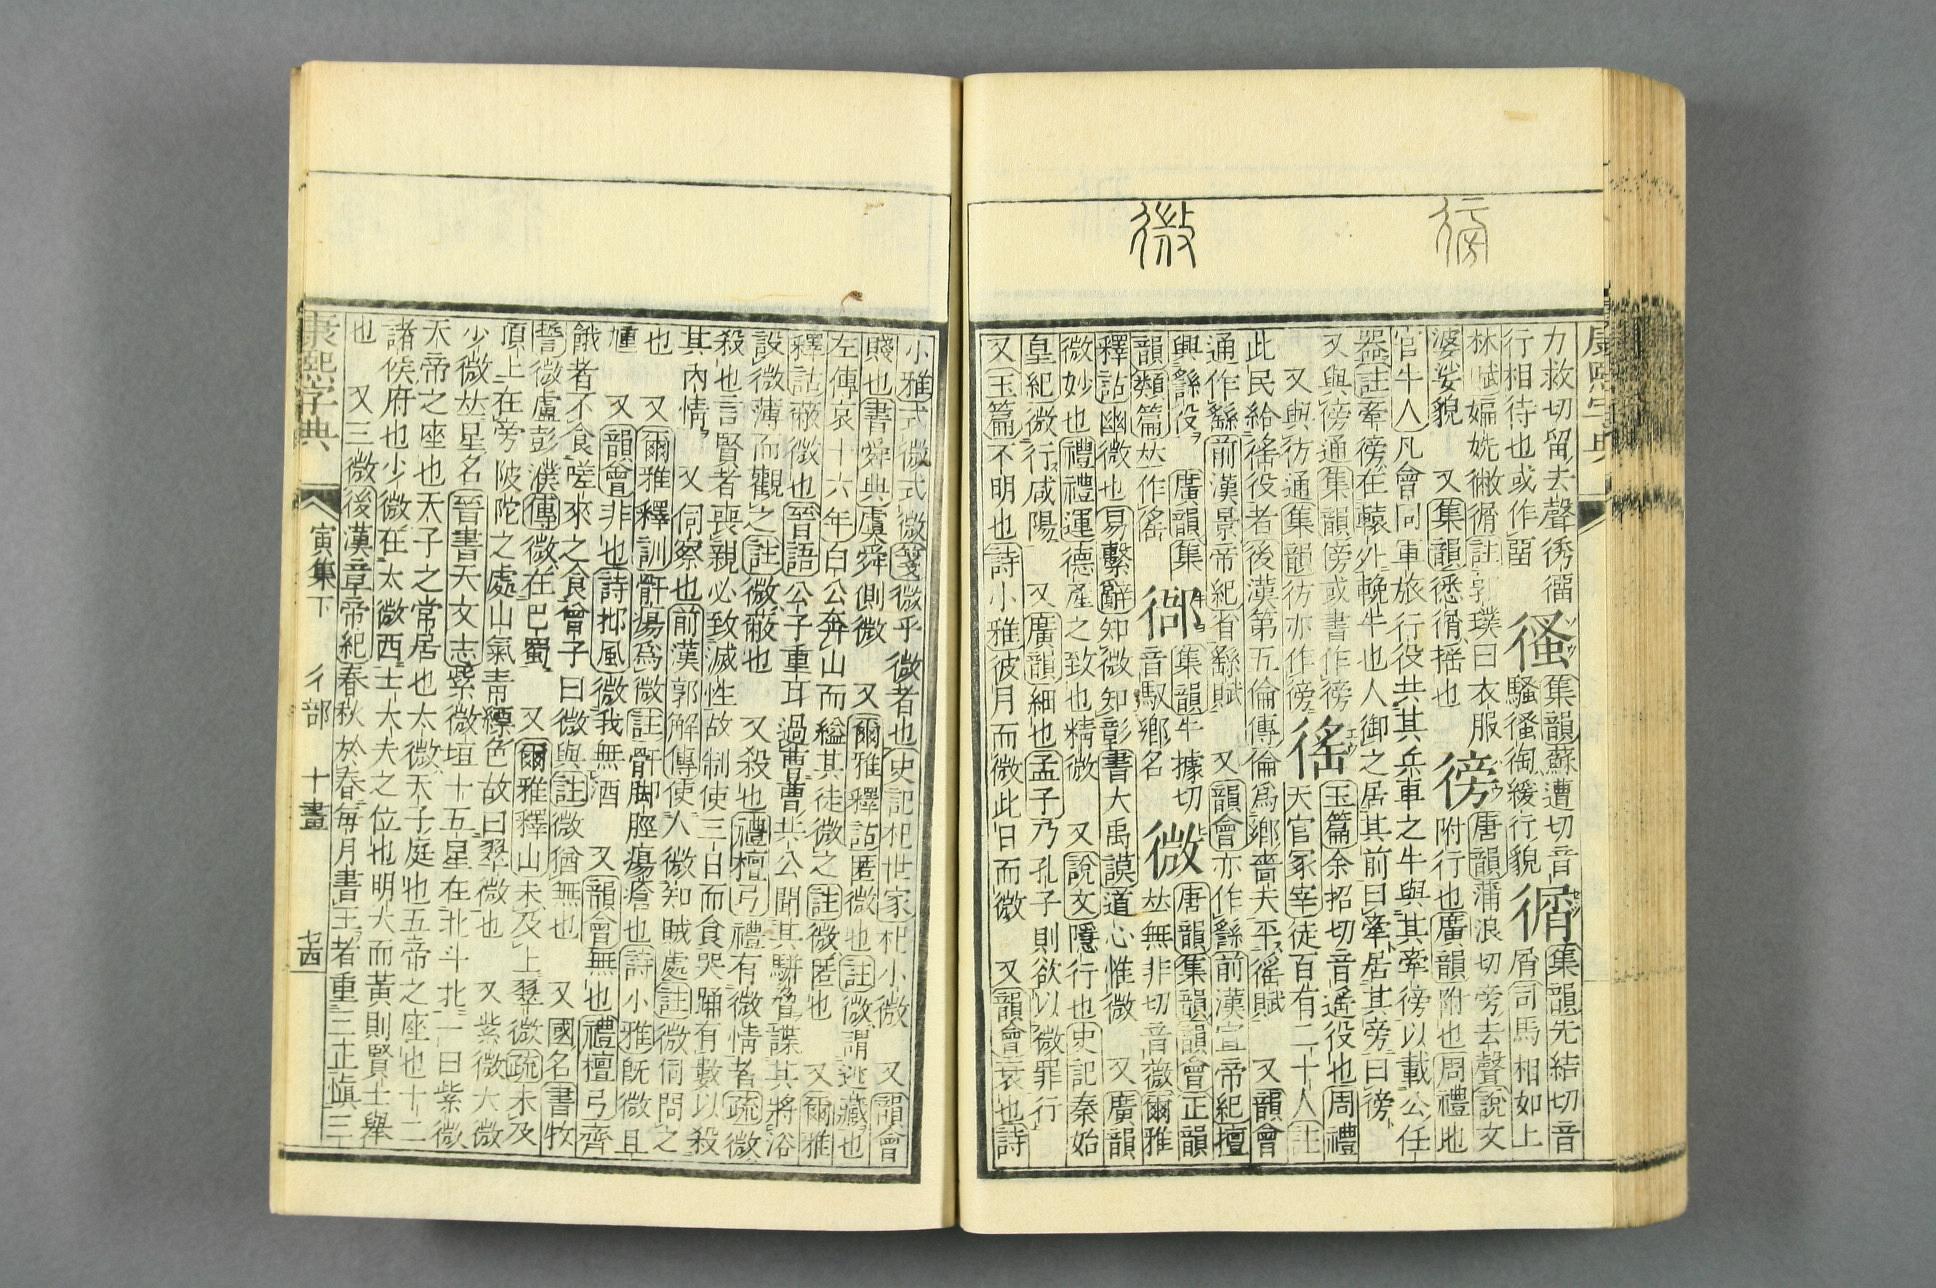 徬
微
康熙字典
力救切留去聲𢔟徟 㣑 集韻蘇遭切音
行相待也或作畱 騷㣑徇緩行貌 㣯 屑司馬相如上 集韻先結切音
林賦媥姺徶㣯註郭璞曰衣服
婆娑貌 又集韻悉㣯搖也 徬 唐韻蒲浪切旁去聲說文 附行也廣韻附也周禮地
官牛人凡會同軍旅行役共其兵車之牛與其牽徬以載公任
器註牽徬在轅外輓牛也人御之居其前曰牽居其旁曰徬
又與傍通集韻傍或書作徬 徭 玉篇余招切音遙役也周禮
又與彷通集韻彷亦作徬 天官冢宰徒百有二十人註
此民給徭役者後漢第五倫傳倫爲鄕嗇夫平徭賦 又韻會
通作繇前漢景帝紀省繇賦 又韻會亦作繇前漢宣帝紀擅
興繇役 廣韻集韻類篇𠀤作徭 集韻牛據切音馭鄕名 微 唐韻集韻韻會正韻𠀤無非切音薇爾雅
釋詁幽微也易繫辭知微知彰書大禹謨道心惟微 又廣韻
微妙也禮禮運德產之致也精微 又說文隱行也史記秦始
皇紀微行咸陽 又廣韻細也孟子乃孔子則欲以微罪行
又玉篇不明也詩小雅彼月而微此日而微 又韻會衰也詩
小雅式微式微箋微乎微者也史記杞世家杞小微 又韻會
賤也書舜典虞舜側微 又爾雅釋詁匿微也註微謂逃藏也
左傳哀十六年白公奔山而縊其徒微之註微匿也 又爾雅
釋詁蔽微也晉語公子重耳過曹曹共公聞其駢脅諜其將浴
設微薄而觀之註微蔽也 又殺也禮檀弓禮有微情者疏微
殺也言賢者喪親必致滅性故制使三日而食哭踊有數以殺
其內情 又伺察也前漢郭解傳使人微知賊處註微伺問之
也 又爾雅釋訓骭瘍爲微註骭脚脛瘍瘡也詩小雅旣微且
尰 又韻會非也詩邶風微我無酒 又韻會無也禮檀弓齊
餓者不食嗟來之食曾子曰微與註微猶無也 又國名書牧
誓微盧彭濮傳微在巴蜀 又爾雅釋山未及上翠微疏未及
頂上在旁陂陀之處山氣靑縹色故曰翠微也 又紫微大微
少微𠀤星名晉書天文志紫微垣十五星在北斗北一曰紫微
大帝之座也天子之常居也太微天子庭也五帝之座也十二
諸侯府也少微在太微西士大夫之位也明大而黃則賢士舉
也 又三微後漢章帝紀春秋於春每月書王者重三正愼三
康熙字典 寅集下 彳部 十畫 七四